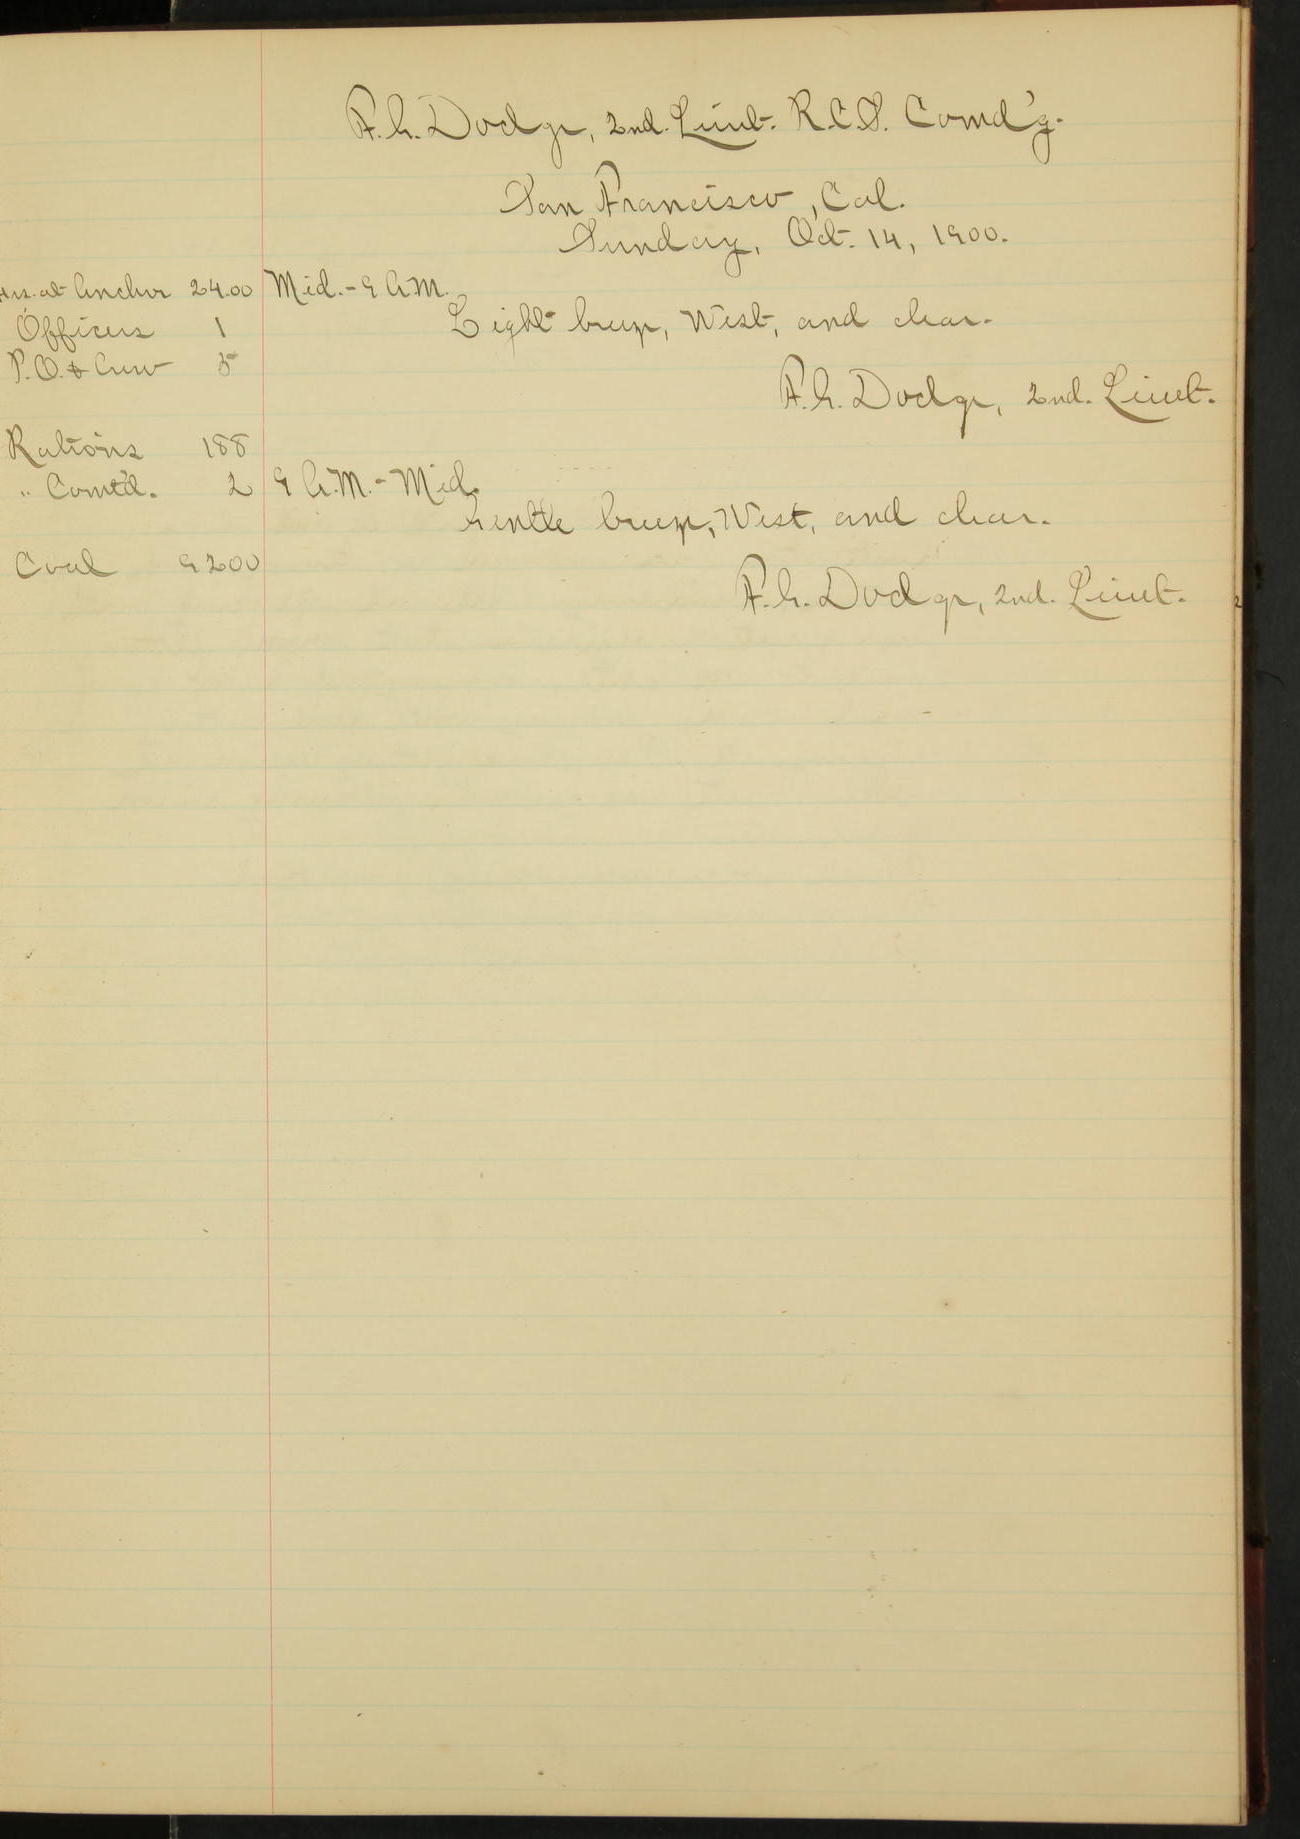 F.G. Dodge, 2nd. Lieut. R.C.S. Comd'g.
San Francisco, Cal.
Sunday, Oct. 14, 1900.
Hrs. at Anchor 24.00 Mid.-9 A.M.
Officers 1 Light breeze, West, and clear.
P.O. & Crew 5
F.G. Dodge, 2nd. Lieut.
Rations 188
" Comt'd. 2 9 A.M.-Mid.
Gentle breeze, West, and clear.
Coal 9200
F.G. Dodge, 2nd. Lieut.